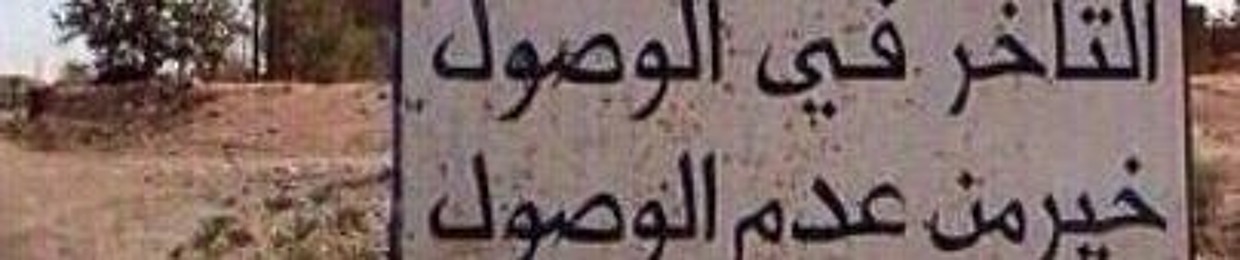 التاخر في الوصول
خير من عدم الوصول